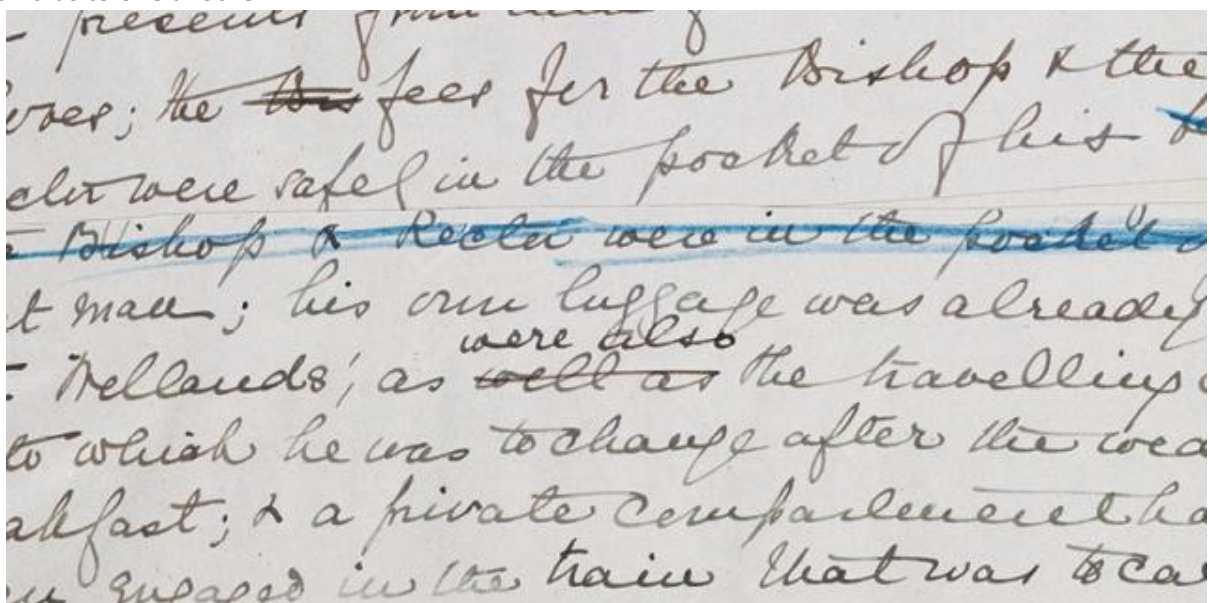 presents from
oves; the ~~Bis~~ fees for the Bishop & the
ector were safely in the pocket of his
~~Bishop & Rector were in the pocket~~
t man; his own luggage was already
were also
'Wellands', as ~~well as~~ the travelling
to which he was to change after the wed
akfast; & a private compartment ha
en engaged in the train that was to ca